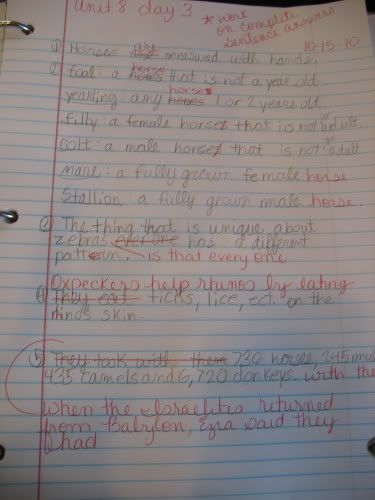 Unit 8 day 3
* work
on complete
sentence answers
10-15-10
① Horses are measured with hands.
② foal: a horse that is not a year old
yearling: any horses 1 or 2 years old.
filly: a female horse that is not an adult
colt: a male horse that is not an adult
Mare: a fully grown female horse
Stallion a fully grown male horse.
③ The thing that is unique about
zebras ever one has a different
pattern. is that every one
Oxpeckers help rhinos by eating
④ they eat ticks, lice, ect. on the
rhinos skin.
⑤ They took with them 736 horse, 245 mul
435 camels and 6,720 donkeys. with the
when the Israelites returned
from Babylon, Ezra said they
had